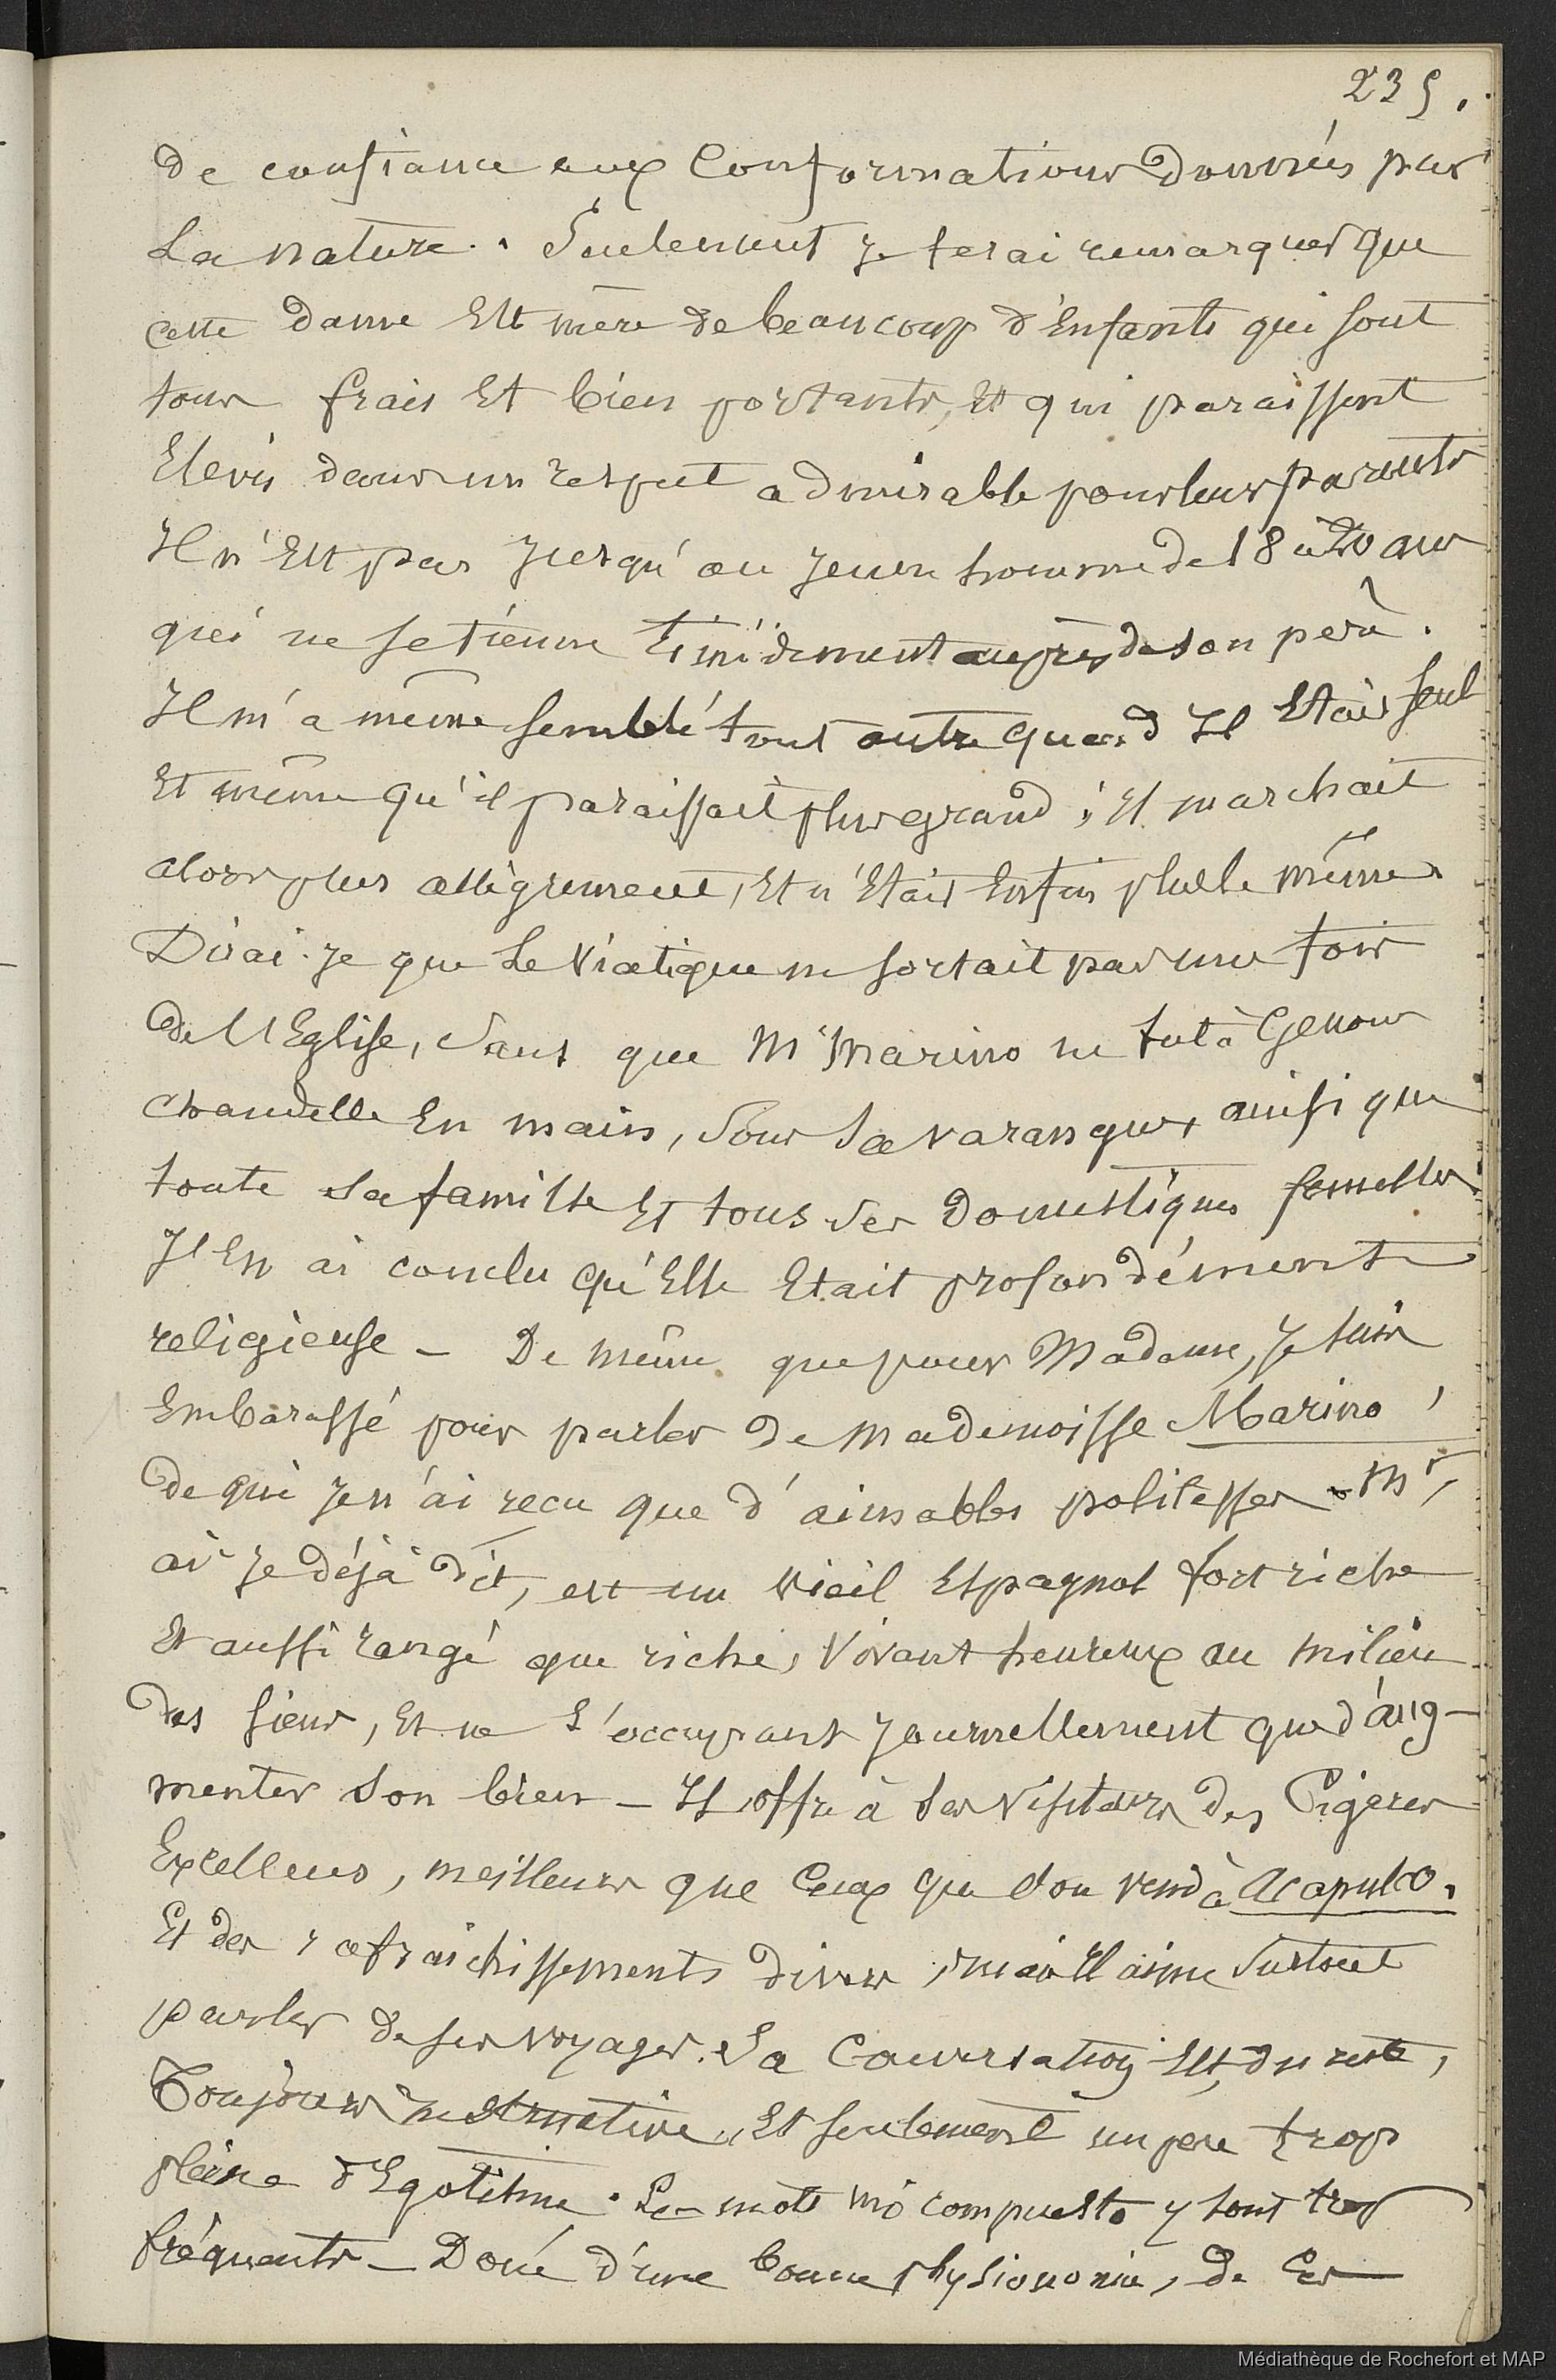 235.
de confiance aux Conformations données par
La nature. Seulement je ferai remarquer que
cette dame Est mère de beaucoup d'Enfants qui sont
tous frais Et bien portants, Et qui paraissent
Elevés dans un respect admirable pour leurs parents
Il n'Est pas jusqu'au jeune homme de 18 à 20 ans
qui ne se tienne timidement auprès de son père.
Il m'a même semblé tout autre quand Il Etait seul
Et même qu'il paraissait plus grand ; Il marchait
alors plus allègrement, Et n'Etait Enfin plus le même.
Dirai-je que Le Viatique ne sortait pas une fois
de l'Eglise, sans que Mr Marino ne fut à Genoux
chandelle En main, sous sa varangue, ainsi que
toute sa famille Et tous ses Domestiques femelles
J'En ai conclu qu'Elle Etait profondément
religieuse – De même que pour Madame, je suis
Embarassé pour parler de Mademoisse Marino,
de qui je n'ai reçu que d'aimables politesses. Mr,
ai-je déjà dit, est un vieil Espagnol fort riche
Et aussi rangé que riche, Vivant heureux au milieu
des siens, Et ne s'occupant journellement que d'aug-
menter son bien – Il offre à ses Visiteurs des Cigares
Excellens, meilleurs que Ceux que l'on vend à Acapulco,
Et des rafraichissements divers, mais Il aime surtout
parler de ses voyages. Sa Conversation Est, du reste,
Toujours instructive, Et seulement un peu trop
pleine d'Egotisme. Les mots mio compuesto y sont trop
fréquents – Doué d'une bonne physionomie, de Ces
Médiathèque de Rochefort et MAP